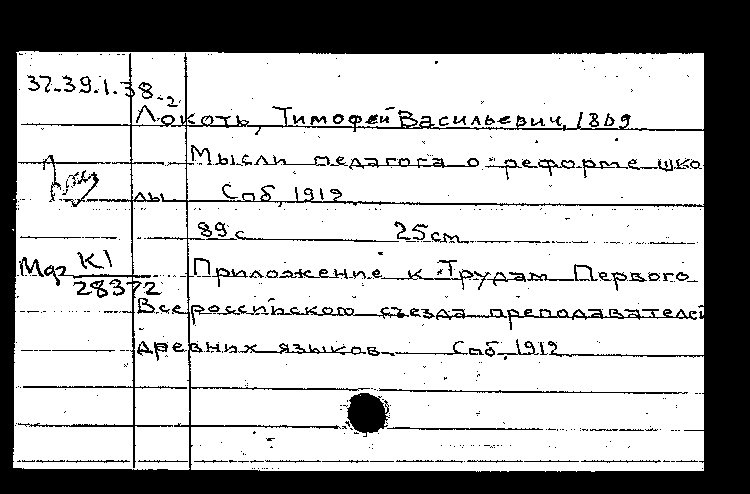 37.39.1.38.2
Локоть, Тимофей Васильевич, 1869
Мысли педагога о реформе шко
лы Спб, 1912
89 с 25 см
К1
28372
Приложение к Трудам Первого
Всероссийского съезда преподавателей
древних языков. Спб, 1912